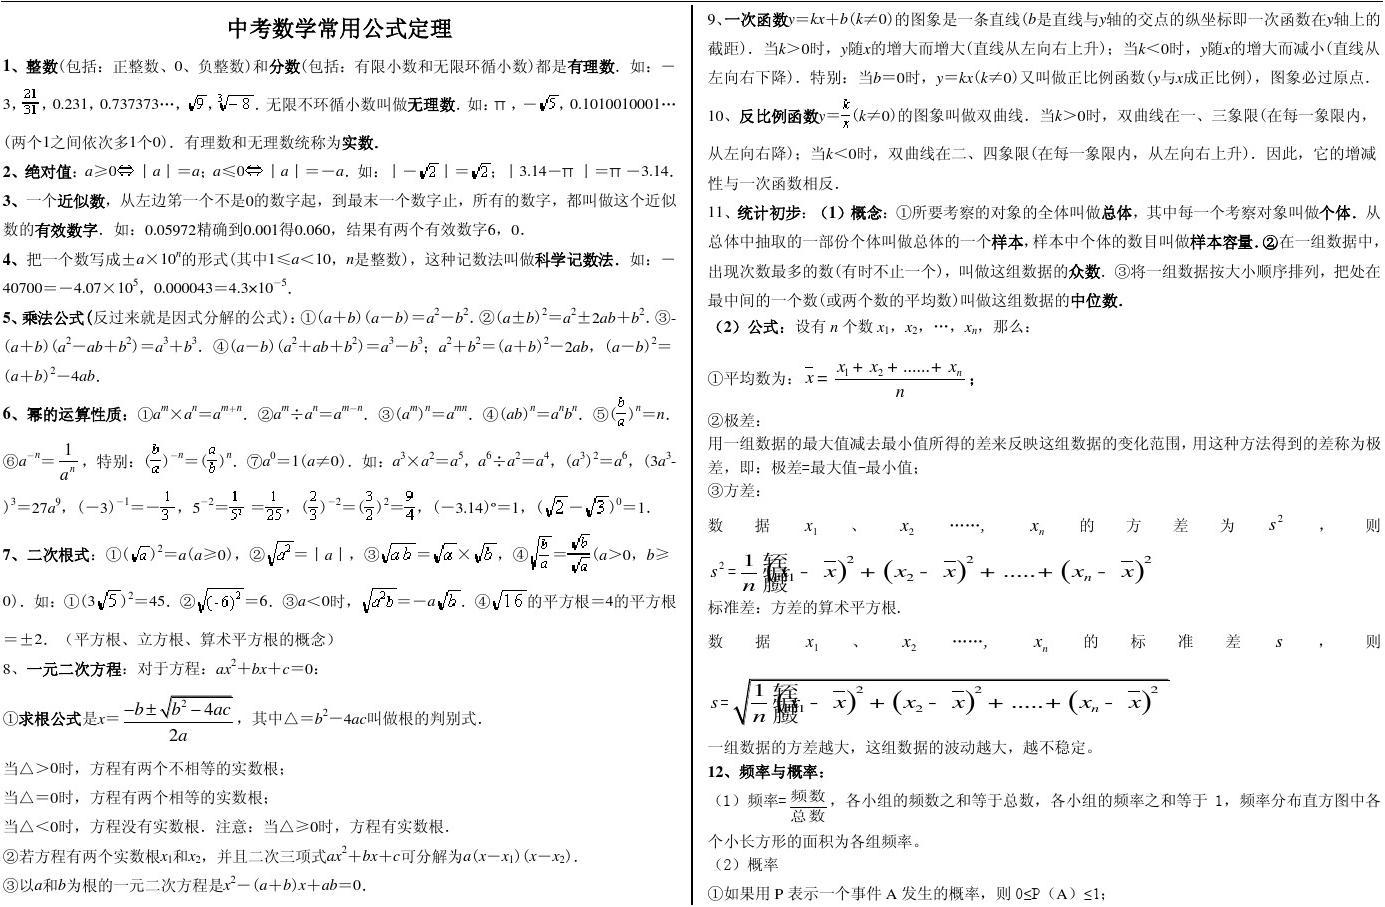 中考数学常用公式定理
1、整数(包括：正整数、0、负整数)和分数(包括：有限小数和无限环循小数)都是有理数．如：－
3，21/31，0.231，0.737373…，√9，∛－8．无限不环循小数叫做无理数．如：π，－√5，0.1010010001…
(两个1之间依次多1个0)．有理数和无理数统称为实数．
2、绝对值：a≥0⇔丨a丨＝a；a≤0⇔丨a丨＝－a．如：丨－√2丨＝√2；丨3.14－π丨＝π－3.14．
3、一个近似数，从左边笫一个不是0的数字起，到最末一个数字止，所有的数字，都叫做这个近似
数的有效数字．如：0.05972精确到0.001得0.060，结果有两个有效数字6，0．
4、把一个数写成±a×10ⁿ的形式(其中1≤a＜10，n是整数)，这种记数法叫做科学记数法．如：－
40700＝－4.07×10⁵，0.000043＝4.3×10⁻⁵．
5、乘法公式(反过来就是因式分解的公式)：①(a＋b)(a－b)＝a²－b²．②(a±b)²＝a²±2ab＋b²．③-
(a＋b)(a²－ab＋b²)＝a³＋b³．④(a－b)(a²＋ab＋b²)＝a³－b³；a²＋b²＝(a＋b)²－2ab，(a－b)²＝
(a＋b)²－4ab．
6、幂的运算性质：①aᵐ×aⁿ＝aᵐ⁺ⁿ．②aᵐ÷aⁿ＝aᵐ⁻ⁿ．③(aᵐ)ⁿ＝aᵐⁿ．④(ab)ⁿ＝aⁿbⁿ．⑤(b/a)ⁿ＝n．
⑥a⁻ⁿ＝1/aⁿ，特别：(b/a)⁻ⁿ＝(a/b)ⁿ．⑦a⁰＝1(a≠0)．如：a³×a²＝a⁵，a⁶÷a²＝a⁴，(a³)²＝a⁶，(3a³-
)³＝27a⁹，(－3)⁻¹＝－1/3，5⁻²＝1/5²＝1/25，(2/3)⁻²＝(3/2)²＝9/4，(－3.14)º＝1，(√2－√3)⁰＝1．
7、二次根式：①(√a)²＝a(a≥0)，②√a²＝丨a丨，③√ab＝√a×√b，④√(b/a)＝√b/√a(a＞0，b≥
0)．如：①(3√5)²＝45．②√(-6)²＝6．③a＜0时，√a²b＝－a√b．④√16的平方根＝4的平方根
＝±2．（平方根、立方根、算术平方根的概念）
8、一元二次方程：对于方程：ax²＋bx＋c＝0：
①求根公式是x＝(−b±√(b²−4ac))/2a，其中△＝b²－4ac叫做根的判别式．
当△＞0时，方程有两个不相等的实数根；
当△＝0时，方程有两个相等的实数根；
当△＜0时，方程没有实数根．注意：当△≥0时，方程有实数根．
②若方程有两个实数根x₁和x₂，并且二次三项式ax²＋bx＋c可分解为a(x－x₁)(x－x₂)．
③以a和b为根的一元二次方程是x²－(a＋b)x＋ab＝0．
9、一次函数y＝kx＋b(k≠0)的图象是一条直线(b是直线与y轴的交点的纵坐标即一次函数在y轴上的
截距)．当k＞0时，y随x的增大而增大(直线从左向右上升)；当k＜0时，y随x的增大而减小(直线从
左向右下降)．特别：当b＝0时，y＝kx(k≠0)又叫做正比例函数(y与x成正比例)，图象必过原点．
10、反比例函数y＝k/x(k≠0)的图象叫做双曲线．当k＞0时，双曲线在一、三象限(在每一象限内，
从左向右降)；当k＜0时，双曲线在二、四象限(在每一象限内，从左向右上升)．因此，它的增减
性与一次函数相反．
11、统计初步：（1）概念：①所要考察的对象的全体叫做总体，其中每一个考察对象叫做个体．从
总体中抽取的一部份个体叫做总体的一个样本，样本中个体的数目叫做样本容量．②在一组数据中，
出现次数最多的数(有时不止一个)，叫做这组数据的众数．③将一组数据按大小顺序排列，把处在
最中间的一个数(或两个数的平均数)叫做这组数据的中位数．
（2）公式：设有 n 个数 x₁，x₂，…，xₙ，那么：
①平均数为：x̄＝(x₁＋x₂＋......＋xₙ)/n；
②极差：
用一组数据的最大值减去最小值所得的差来反映这组数据的变化范围，用这种方法得到的差称为极
差，即：极差=最大值-最小值；
③方差：
数据x₁、x₂……，xₙ的方差为s²，则
s²=1/n − x̄)²+(x₂− x̄)²+.....+(xₙ− x̄)²
标准差：方差的算术平方根．
数据x₁、x₂……，xₙ的标准差s，则
s=√1/n − x̄)²+(x₂− x̄)²+.....+(xₙ− x̄)²
一组数据的方差越大，这组数据的波动越大，越不稳定。
12、频率与概率：
（1）频率=频数/总数，各小组的频数之和等于总数，各小组的频率之和等于 1，频率分布直方图中各
个小长方形的面积为各组频率。
（2）概率
①如果用 P 表示一个事件 A 发生的概率，则 0≤P（A）≤1；